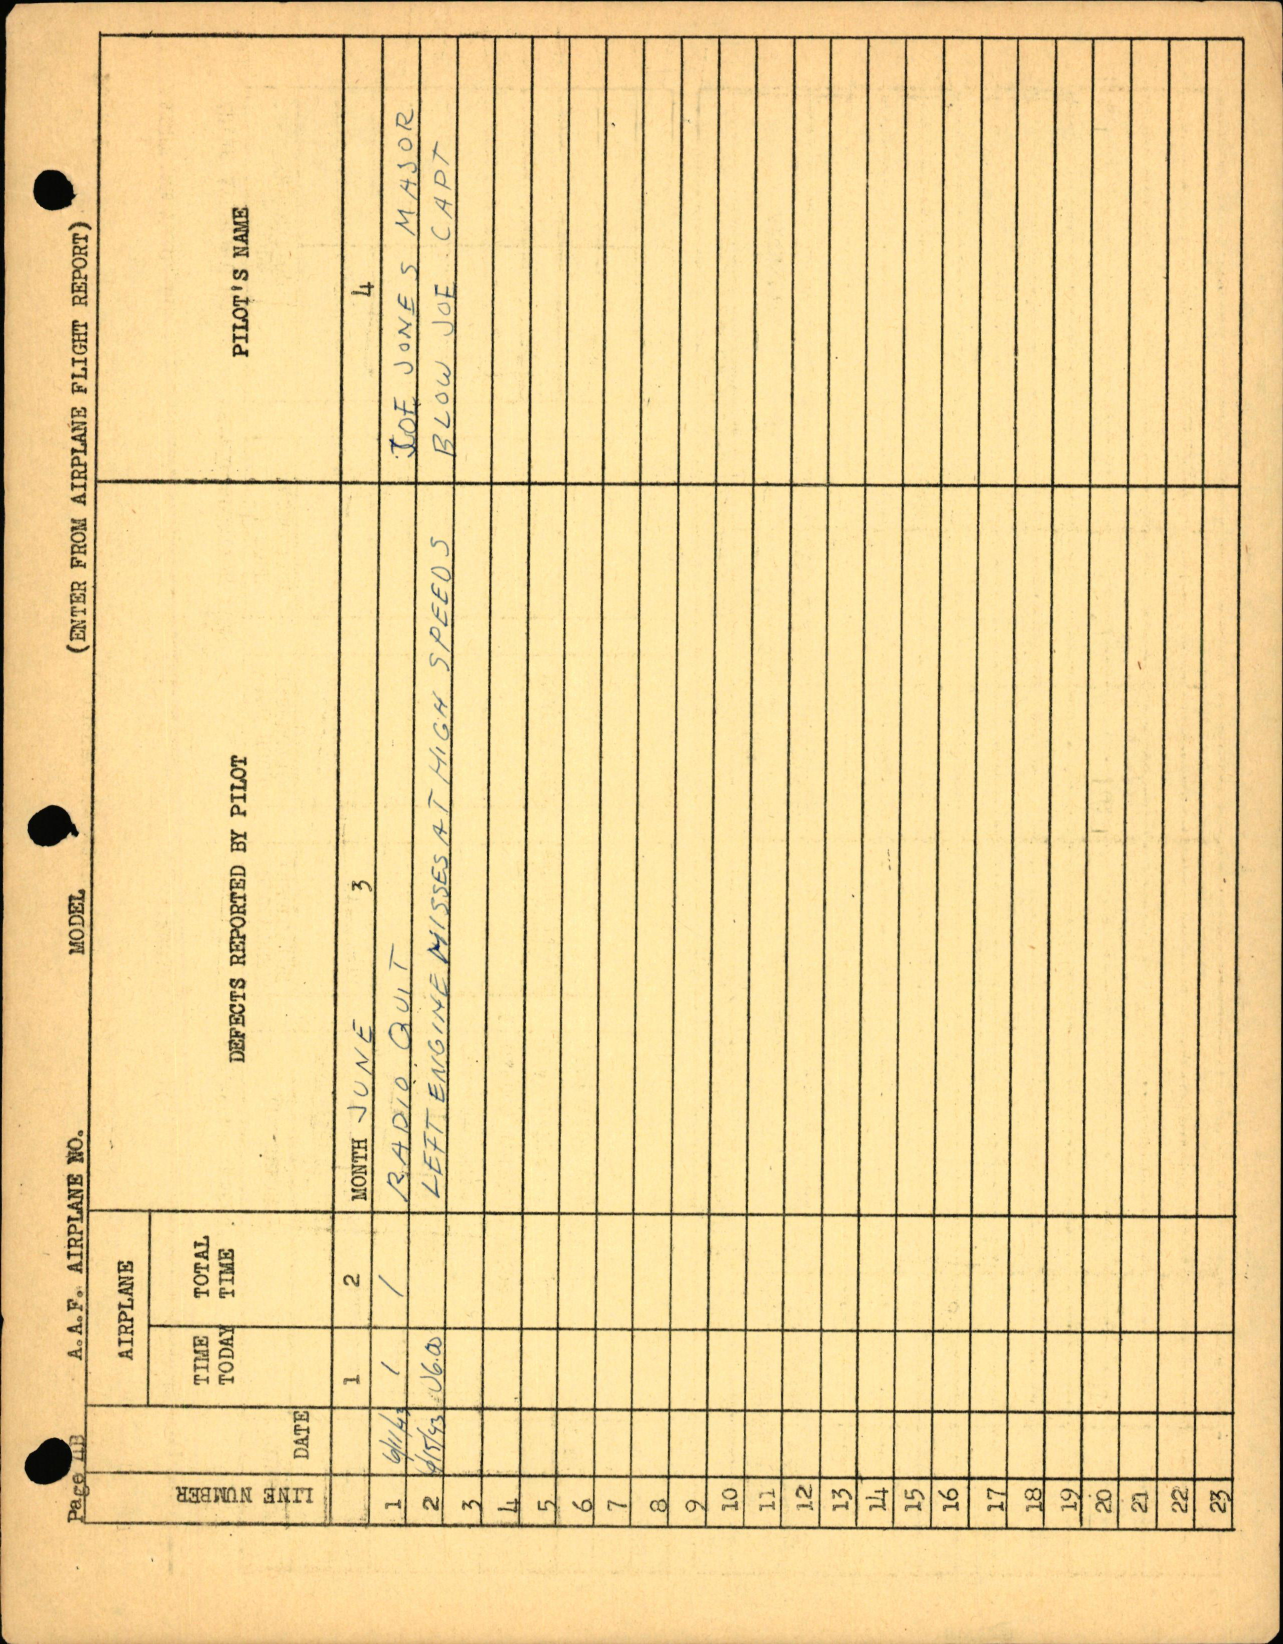 Page 4B A.A.F. AIRPLANE NO. MODEL (ENTER FROM AIRPLANE FLIGHT REPORT)
LINE NUMBER
DATE
AIRPLANE
TIME TODAY
TOTAL TIME
DEFECTS REPORTED BY PILOT
PILOT'S NAME
1 2 MONTH JUNE 3 4
1 6/11/43 / / RADIO QUIT JOE JONES MAJOR
2 6/15/43 LEFT ENGINE MISSES AT HIGH SPEEDS BLOW JOE CAPT
3
4
5
6
7
8
9
10
11
12
13
14
15
16
17
18
19
20
21
22
23